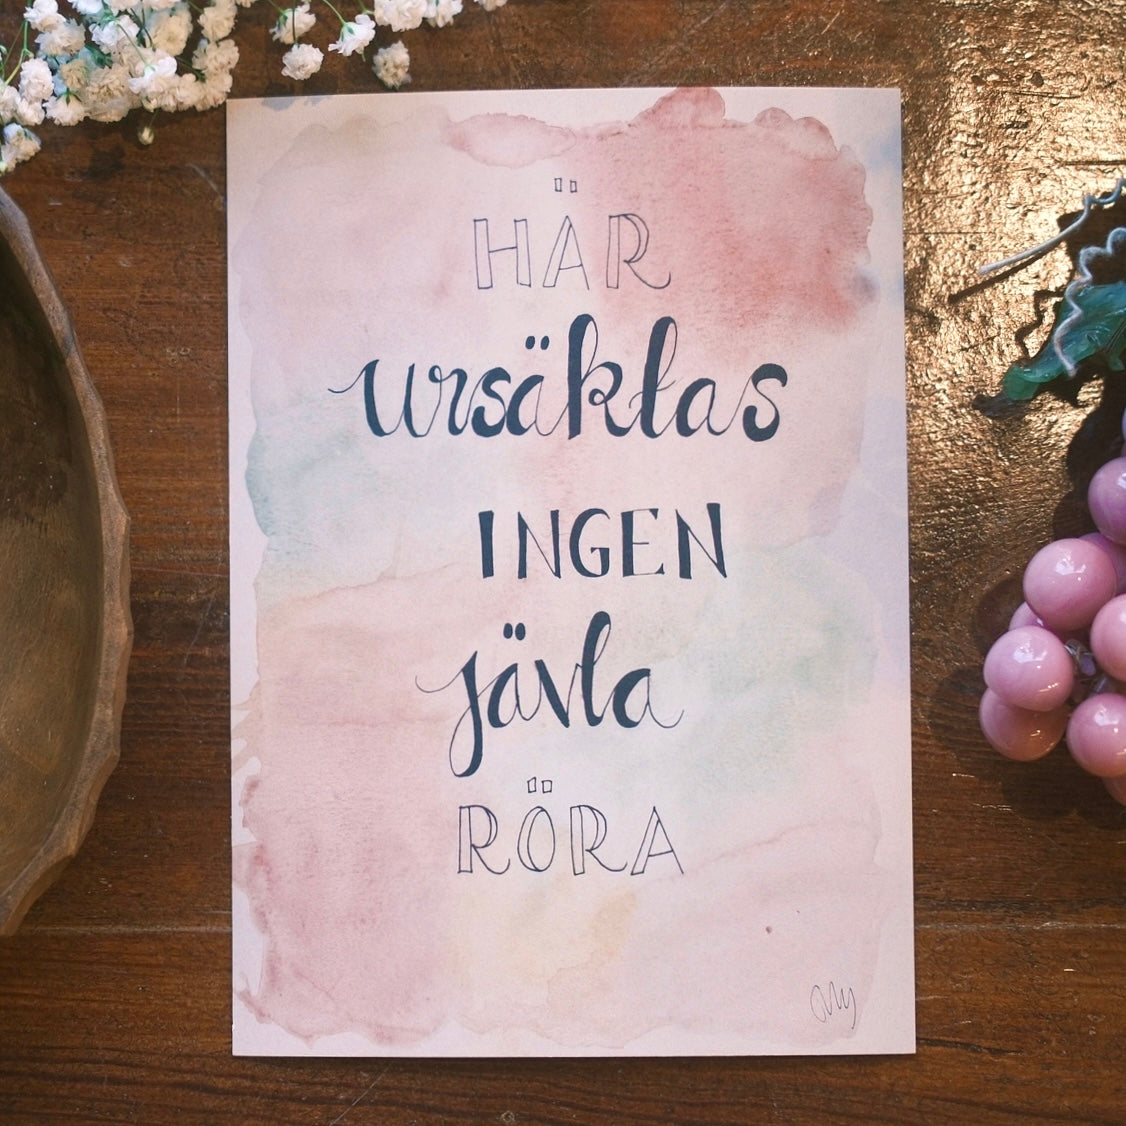 HÄR
ursäktas
INGEN
jävla
RÖRA